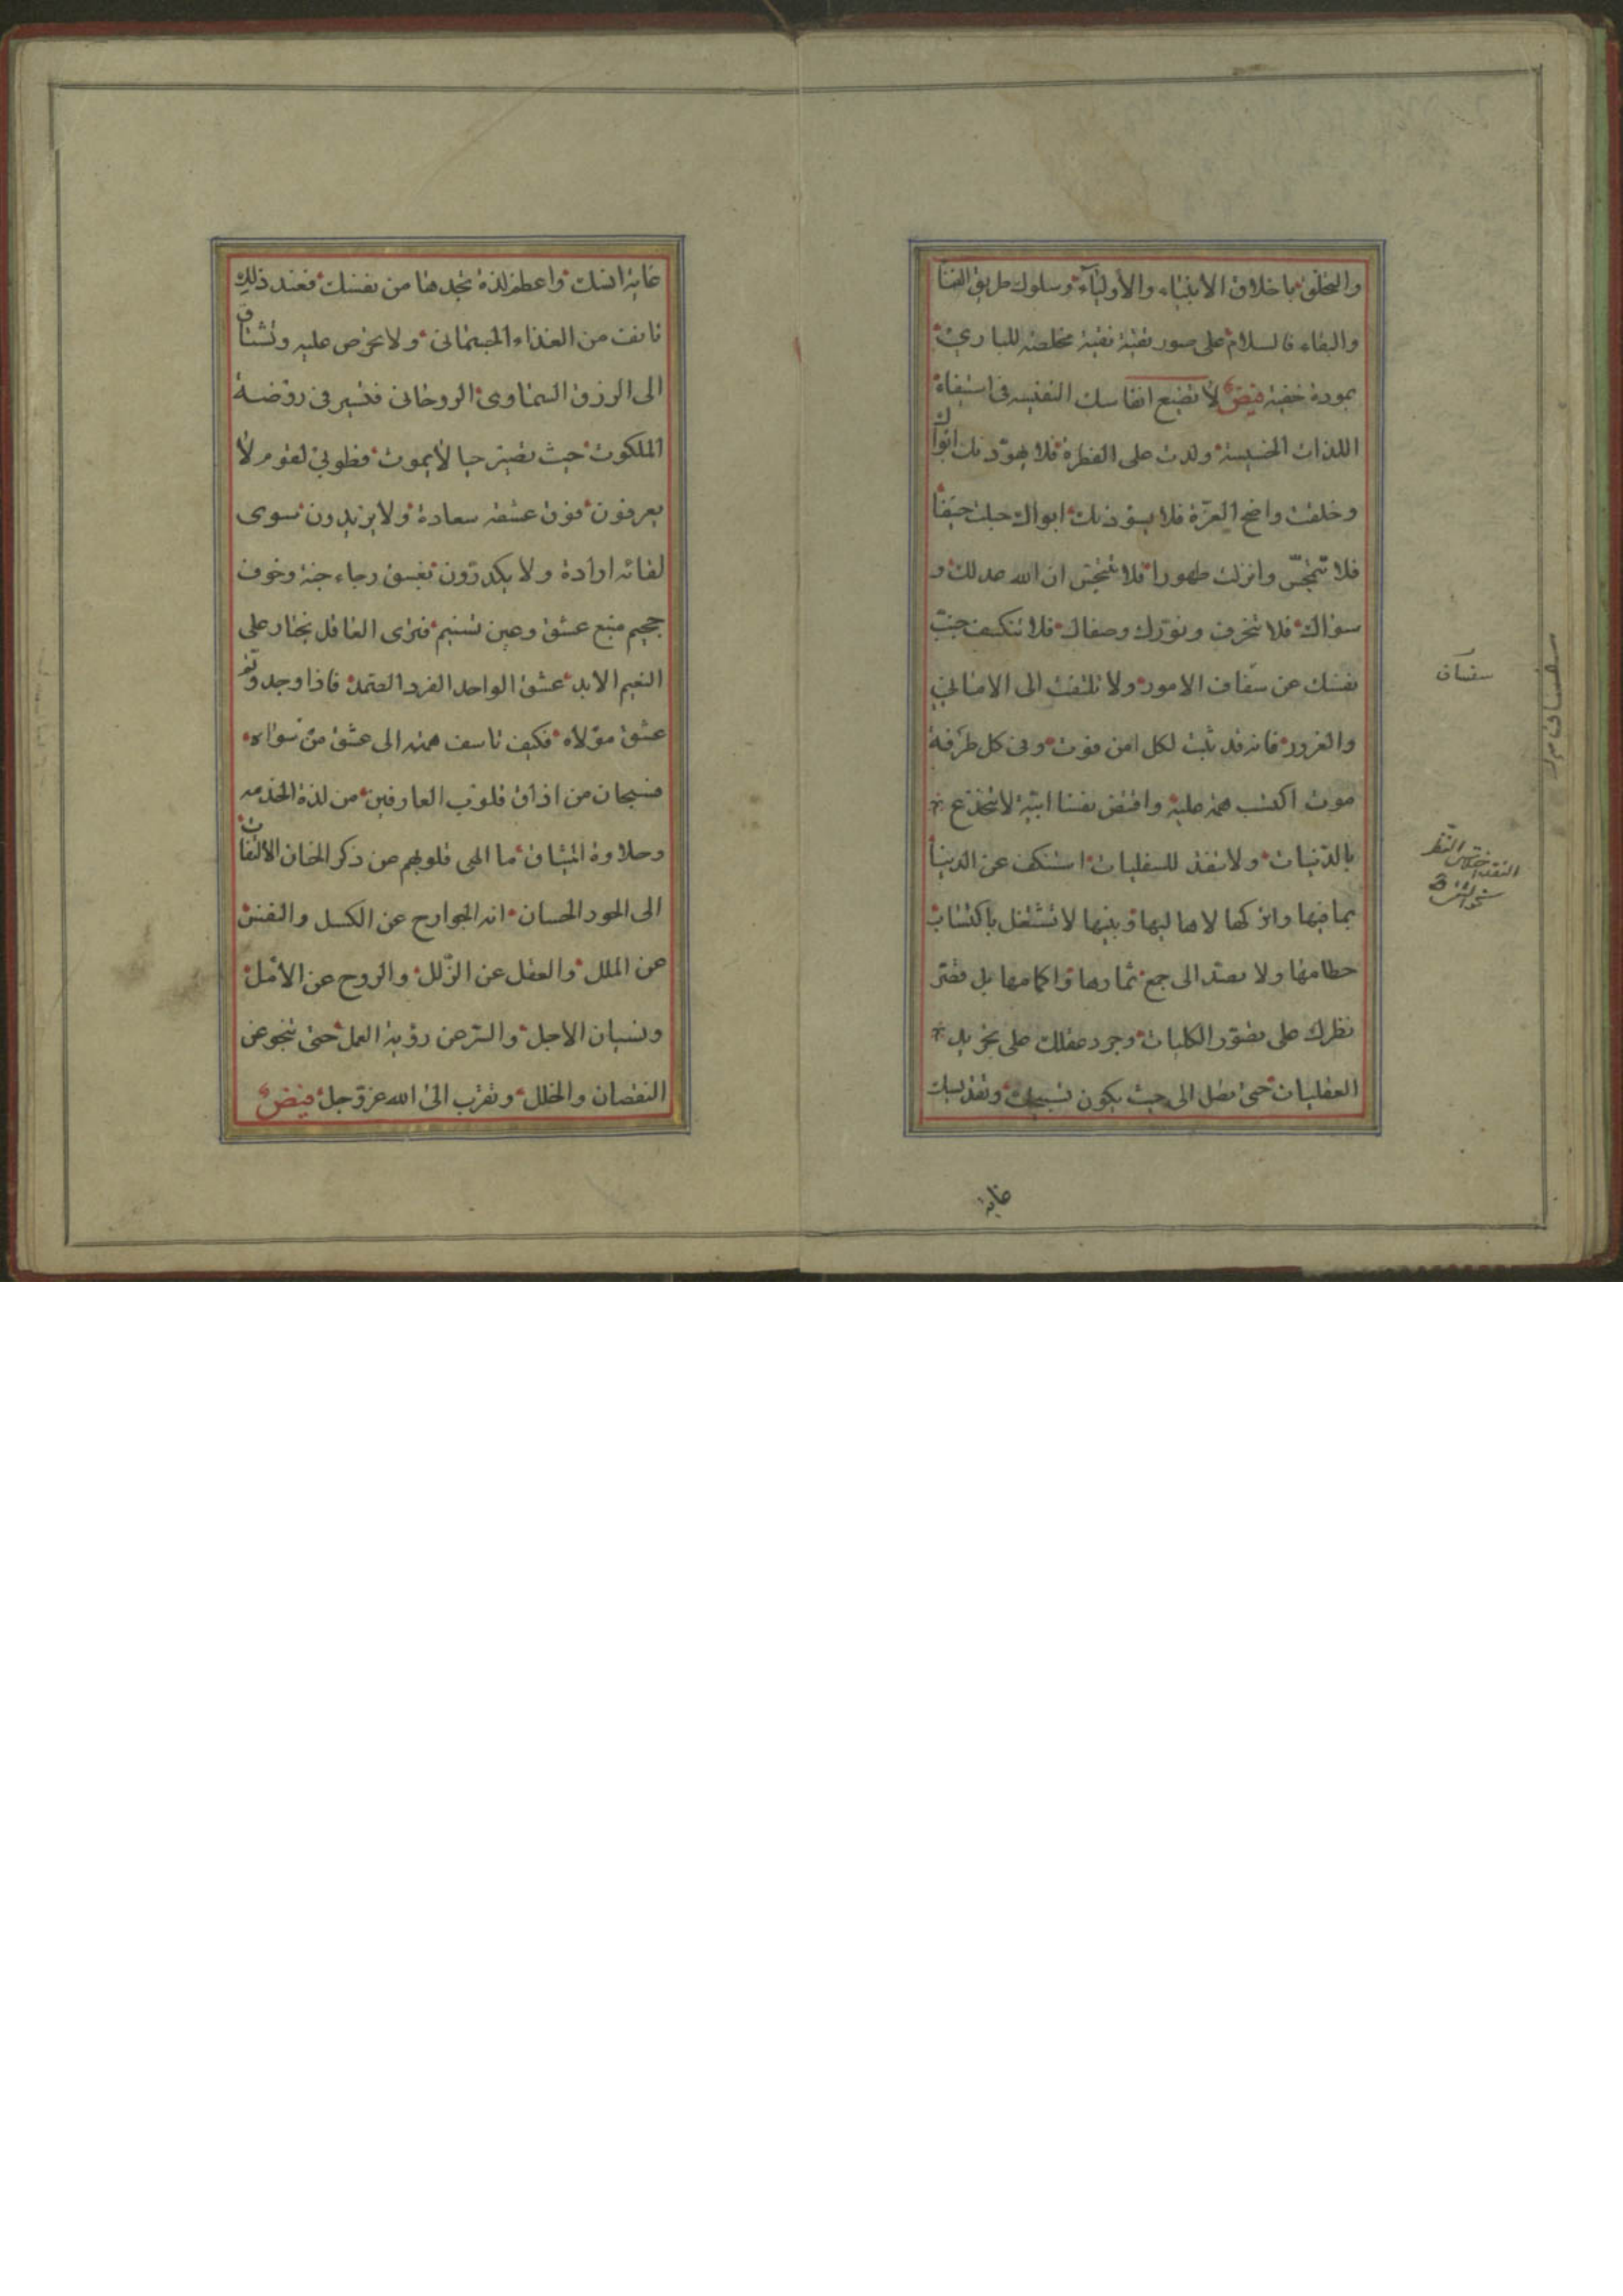 والتخلق باخلاق الانبياء والأولياء وسلوك طريق الفنا
والبقاء فالسلام على صور نقية نقية مخلصة للباري
بمودة خفية فيض لا تضيع انفاسك النفيسه في استيفاء
اللذات الخسيسة ولدت على الفطرة فلا يهودنك ابواك
وخلقت واضح الغرة فلا يسودنك ابواك جبلت حنيفا
فلا تتمجس وانزلت طهورا فلا تتنجس ان الله عدلك و
سواك فلا تنحرف ونورك وصفاك فلا تنكسف جنب
نفسك عن سفساف الامور ولا تلتفت الى الاماني
والغرور فانه قد ثبت لكل امن فوت وفى كل طرفة
موت اكتسب همة علية واقتض نفسا ابية لا تنخدع
بالدنيات ولا تنقد للسفليات استنكف عن الدنيا
بما فيها واتركها لاهاليها وبنيها لا تشتغل باكتساب
حطامها ولا تصتد الى جمع ثمارها واكمامها بل قصر
نظرك على تصور الكليات وجرد عقلك على تجريد
العقليات حتى تصل الى حيث يكون تسبيحك وتقديسك
سفساف
غاية
غاية انسك واعظم لذة تجدها من نفسك فعند ذلك
تانف من الغذاء الجسمانى ولا تحرص عليه وتشتاق
الى الرزق السماوى الروحانى فتسير فى روضة
الملكوت حيث تصير حيا لا يموت فطوبى لقوم لا
يعرفون فوق عشقه سعادة ولا يريدون سوى
لقائه ارادة ولا يكدرون بغسق رجاء جنة وخوف
جحيم منبع عشق وعين تسنيم فترى العاقل يختار على
النعيم الابد عشق الواحد الفرد الصمد فاذا وجد
عشق مولاه فكيف تاسف همته الى عشق من سواه
فسبحان من اذاق قلوب العارفين من لذة الخدمه
وحلاوة الميثاق ما الهى قلوبهم عن ذكر الجنان الالتفات
الى الحور الحسان انه الجوارح عن الكسل والنفس
عن الملل والعقل عن الزلل والروح عن الامل
ونسيان الاجل والسر عن رؤية العمل حتى تنجو عن
النقصان والخلل وتقرب الى الله عز وجل فيض